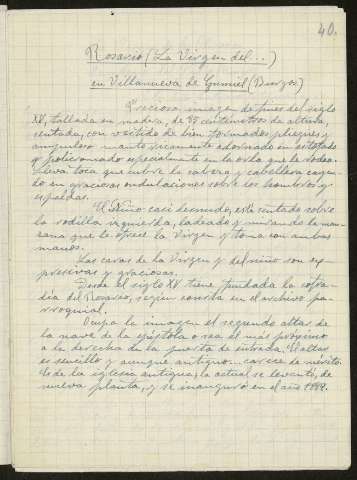 40.
Rosario (La Virgen del...)
en Villanueva de Gumiel (Burgos)
Preciosa imagen de fines del siglo
XV, tallada en madera, de 88 centímetros de altura,
sentada, con vestido de bien formados pliegues y
amplísimo manto ricamente adornado en estofado
y policromado especialmente en la orla que le rodea.
Lleva toca que cubre la cabeza y cabellera cayen-
do en graciosas ondulaciones sobre los hombros y
espaldas.
El Niño casi desnudo, está sentado sobre
la rodilla izquierda, ladeado y mirando la man-
zana que le ofrece la Virgen y toma con ambas
manos.
Las caras de la Virgen y del niño son ex-
presivas y graciosas.
Desde el siglo XV tiene fundada la cofra-
día del Rosario, según consta en el archivo pa-
rroquial.
Ocupa la imagen el segundo altar de
la nave de la epístola o sea el más próximo
a la derecha de la puerta de entrada. El altar
es sencillo y aunque antiguo carece de mérito.
de la iglesia antigua, la actual se levantó, de
nueva planta, y se inauguró en el año